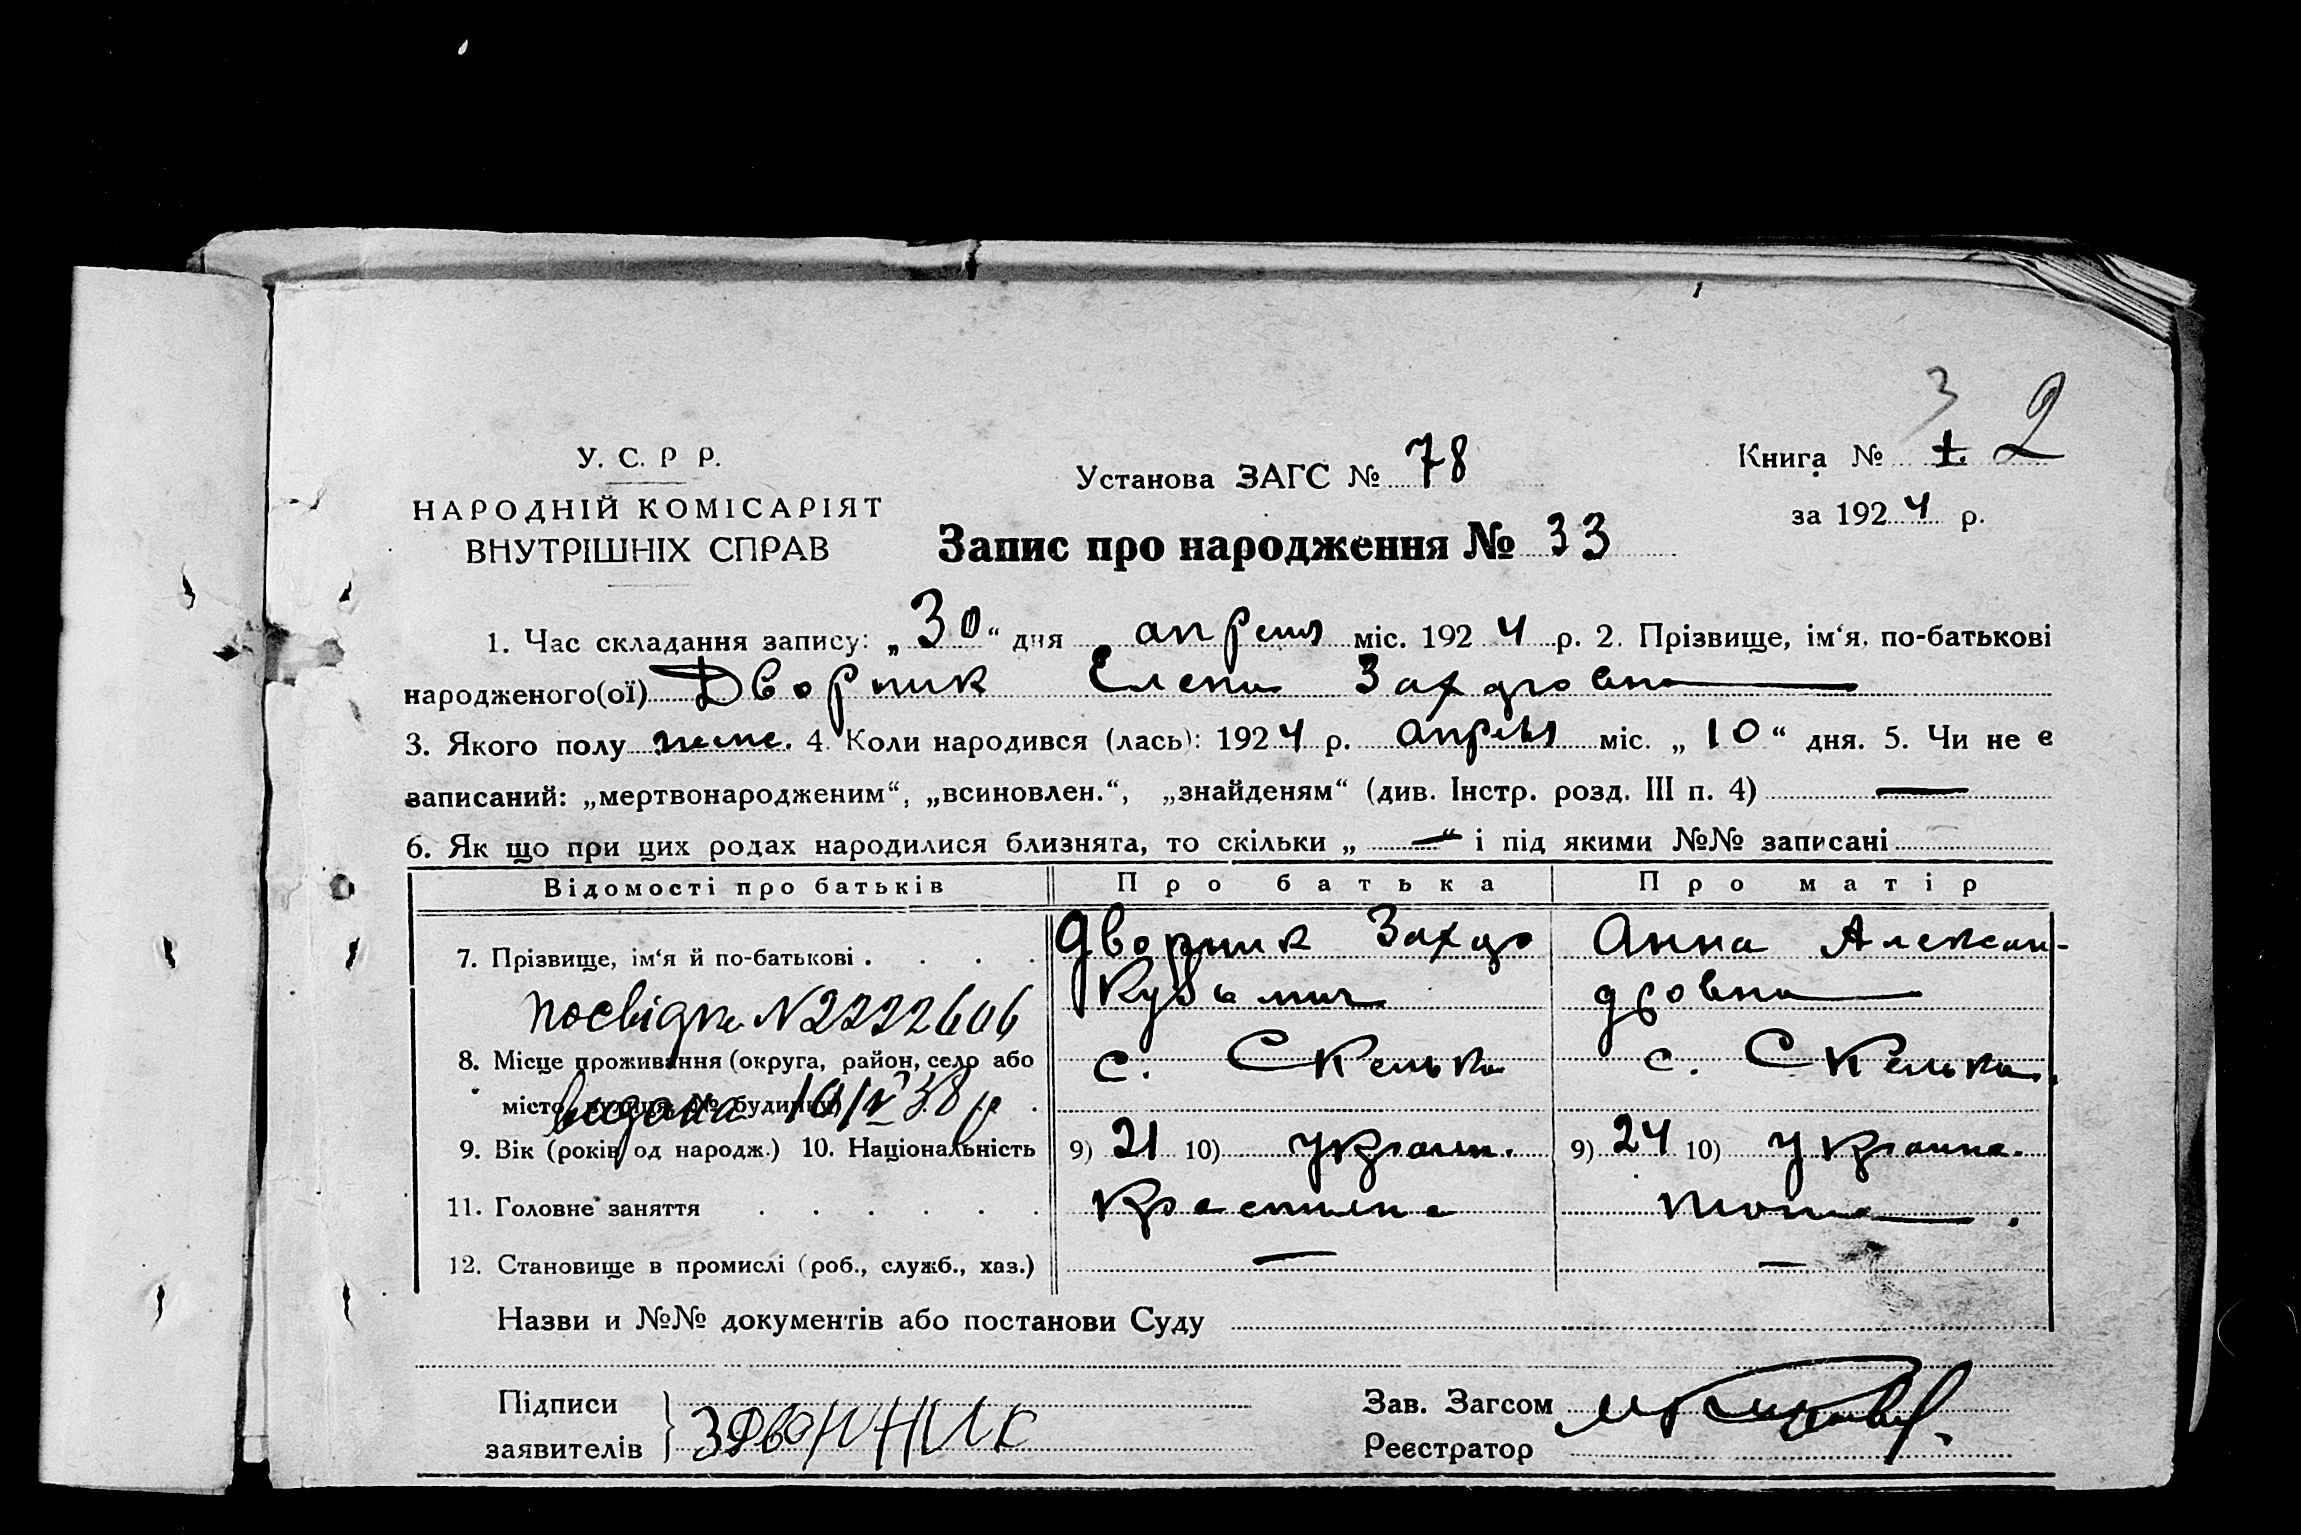 3
У. С. Р Р.
Установа ЗАГС № 78
Книга № 1. 2
НАРОДНІЙ КОМІСАРІЯТ
за 192 4 р.
ВНУТРІШНІХ СПРАВ
Запис про народження № 33
1. Час складання запису: „ 30 “ дня апреля міс. 192 4 р. 2. Прізвище, ім‘я, по-батькові
народженого(ої) Дворник Елена Захаровна
3. Якого полу женс. 4. Коли народився (лась): 192 4 р. апреля міс. „ 10 “ дня. 5. Чи не є
записаний: „мертвонародженим“, „всиновлен.“, „знайденям“ (див. Інстр. розд. III п. 4) —
6. Як що при цих родах народилися близнята, то скільки „ — “ і під якими №№ записані
Відомості про батьків Про батька Про матір
7. Прізвище, ім‘я й по-батькові . . . . Дворник Захар Анна Алексан-
Кузьмич дровна
посвідка N 2222606
8. Місце проживання (округа, район, село або с. Скелька с. Скелька.
місто, вулиця, № будинку) .
видана 10/V 38 р
9. Вік (років од народж.) 10. Національність 9) 21 10) Украин. 9) 24 10) Украинка.
11. Головне заняття . . . . . .
12. Становище в промислі (роб., служб., хаз.) — —
Назви и №№ документів або постанови Суду
Підписи
заявителів
З Дворник
Зав. Загсом
Реєстратор